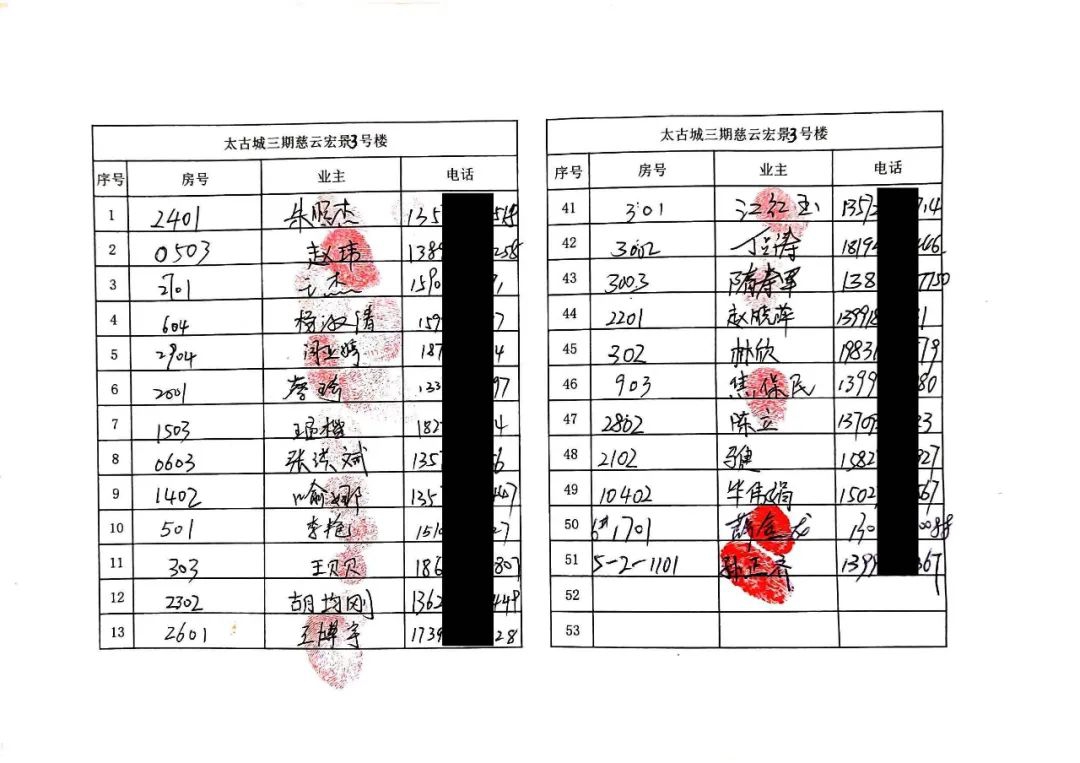 太古城三期慈云宏景3号楼
序号 房号 业主 电话
1 2401 朱 杰 135 515
2 0503 赵玮 1389 258
3 2701 杰 1590 1
4 604 杨淑清 159 7
5 2904 闫 婷 187 4
6 2001 133 97
7 1503 182 4
8 0603 张洪斌 1357 6
9 1402 喻娜 1357 447
10 501 李艳 1510 27
11 303 王贝贝 186 807
12 2302 胡均刚 1362 448
13 2601 王博宇 1739 28
太古城三期慈云宏景3号楼
序号 房号 业主 电话
41 301 江红玉 1357 714
42 3002 丁 涛 1819 466
43 3003 隋 军 138 7750
44 2201 赵晓萍 13991 1
45 302 林欣 1983 79
46 903 焦保民 1399 80
47 2802 陈立 1370 23
48 2102 1582 927
49 10402 毕伟娟 1502 567
50 1701 金龙 130 0088
51 5-2-1101 孙正齐 1399 367
52
53